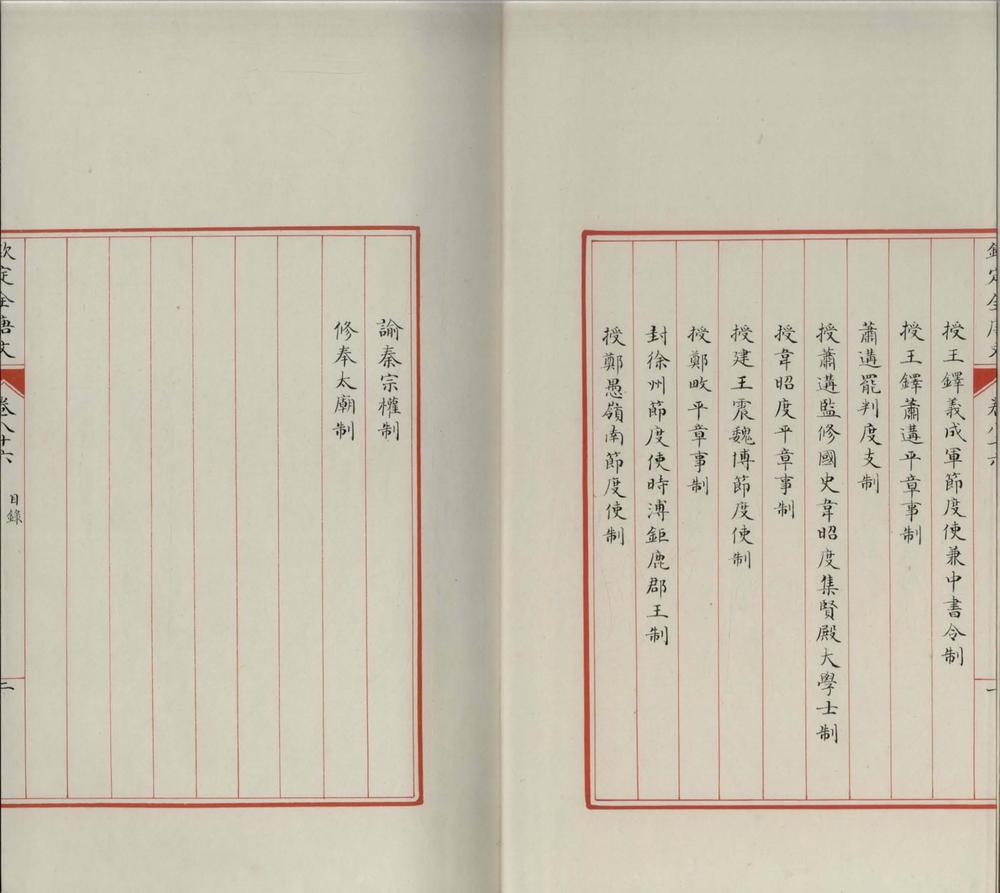 欽定全唐文
卷八十六
一
授王鐸義成軍節度使兼中書令制
授王鐸蕭遘平章事制
蕭遘罷判度支制
授蕭遘監修國史韋昭度集賢殿大學士制
授韋昭度平章事制
授建王震魏博節度使制
授鄭畋平章事制
封徐州節度使時溥鉅鹿郡王制
授鄭愚嶺南節度使制
諭秦宗權制
修奉太廟制
欽定全唐文
卷八十六
目錄
二